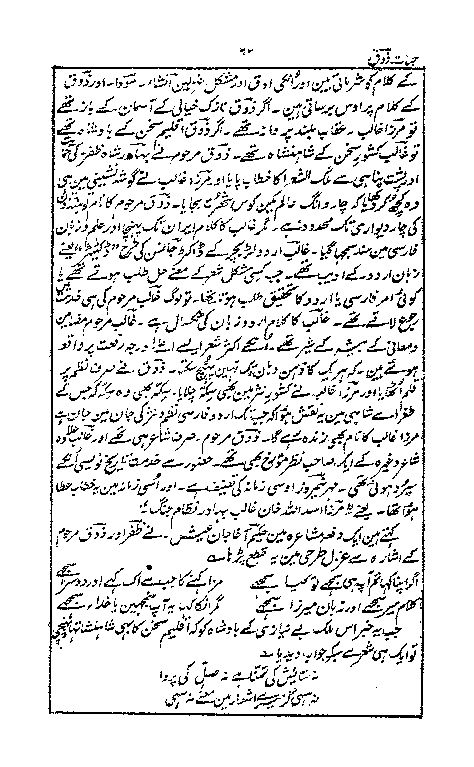 حیات ذوق
۶۲
کے کلام کو شرماتی ہین اور انکی ادق اور مشکل انشاء۔ سودا۔ اور ذوق
کے کلام پر اوس برساتی ہین۔ اگر ذوق نازک خیالی کے آسمان کے باز تھے
تو مرزا غالب۔ عقاب بلند پرواز تھے۔ اگر ذوق اقلیم سخن کے بادشاہ تھے
تو غالب کشور سخن کے شاہنشاہ تھے۔ ذوق مرحوم نے بہادر شاہ ظفر کی
اور پشت پناہی سے ملک الشعرا کا خطاب پایا اور مرزا غالب نے گوشہ نشینی مین ہی
وہ کچھ کر دکھایا کہ چار دانگ عالم مین کوس شہرت بجایا۔ ذوق مرحوم کا نام
کی چار دیواری تک محدود رہا۔ مگر غالب کا کلام ایران تک پہنچا اور علم و زبان
فارسی مین سند سمجہا گیا۔ غالب اردو لٹریچر کے ڈاکٹر جانسن کی طرح
زبان اردو کے ادیب تھے۔ جب کسی مشکل شعر کے معنے حل طلب ہوتے تھے یا
کوئی امر فارسی یا اردو کا تحقیق طلب ہوتا تھا۔ تو لوگ غالب مرحوم کی ہی خدمت
رجوع لاتے تھے۔ غالب کا کلام اردو زبان کی ٹکسال ہے۔ غالب مرحوم مضامین
و معانی کے بیشہ کے شیر تھے۔ اکثر شعر ایسے اعلیٰ درجہ رفعت پر واقع
ہوئے ہین۔ کہ ہر ایک کا توسن وہان تک نہین پہنچ سکتا۔ ذوق نے صرف نظم پر
قلم اٹھایا اور مرزا غالب نے کشور نثر مین بھی سکہ چلایا۔ سکہ بھی وہ سکہ کہ جس کے
طغراے شاہی مین یہ نقش تھا کہ جب تک اردو فارسی نظم و نثر کی جان مین جان ہے
مرزا غالب کا نام بھی زندہ رہے گا۔ ذوق مرحوم۔ صرف شاعر ہی تھے اور غالب علاوہ
شاعر وغیرہ کے ایک صاحب نظر مورخ بھی تھے۔ حضور سے خدمت تاریخ نویسی کی
سپرد ہوئی تھی۔ مہر نیمروز اوسی زمانہ کی تصنیف ہے۔ اور اسی زمانہ مین یہ خطاب عطا
ہوا تھا۔ یعنے مرزا اسد اللہ خان غالب بہادر نظام جنگ
کہتے ہین ایک دفعہ مشاعرہ مین حکیم آغا جان عیش نے ظفر اور ذوق مرحوم
کے اشارہ سے غزل طرحی مین یہ قطعہ پڑھا ہے
اگر اپنا کہا تم آپ ہی سمجھے تو کیا سمجھے     مزا کہنے کا جب ہے اک کہے اور دوسرا سمجھے
کلام میر سمجھے اور زبان میرزا سمجھے     مگر انکا کہا یہ آپ سمجھین یا خدا سمجھے
جب یہ خبر اس ملک بے نیازی کے بادشاہ کو کہ اقلیم سخن کا بھی شاہنشاہ تھا پہنچی
تو ایک ہی شعر سے یہ جواب دیدیا ہے
نہ ستایش کی تمنا ہے نہ صلہ کی پروا
نہ سہی گر میرے اشعار مین معنے نہ سہی